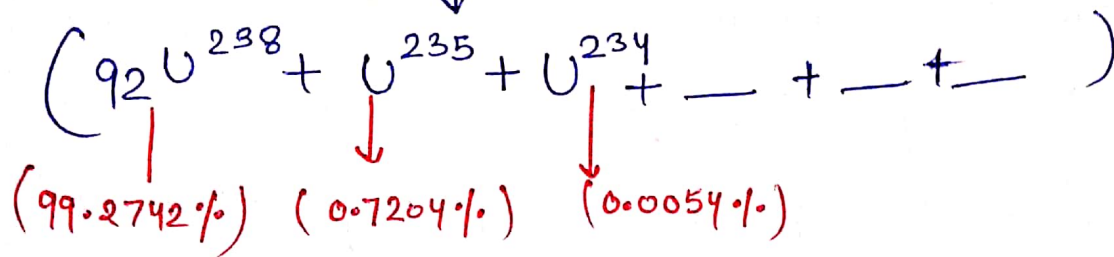 (₉₂U²³⁸ + U²³⁵ + U²³⁴ + __ + __ + __ )
(99.2742%) (0.7204%) (0.0054%)